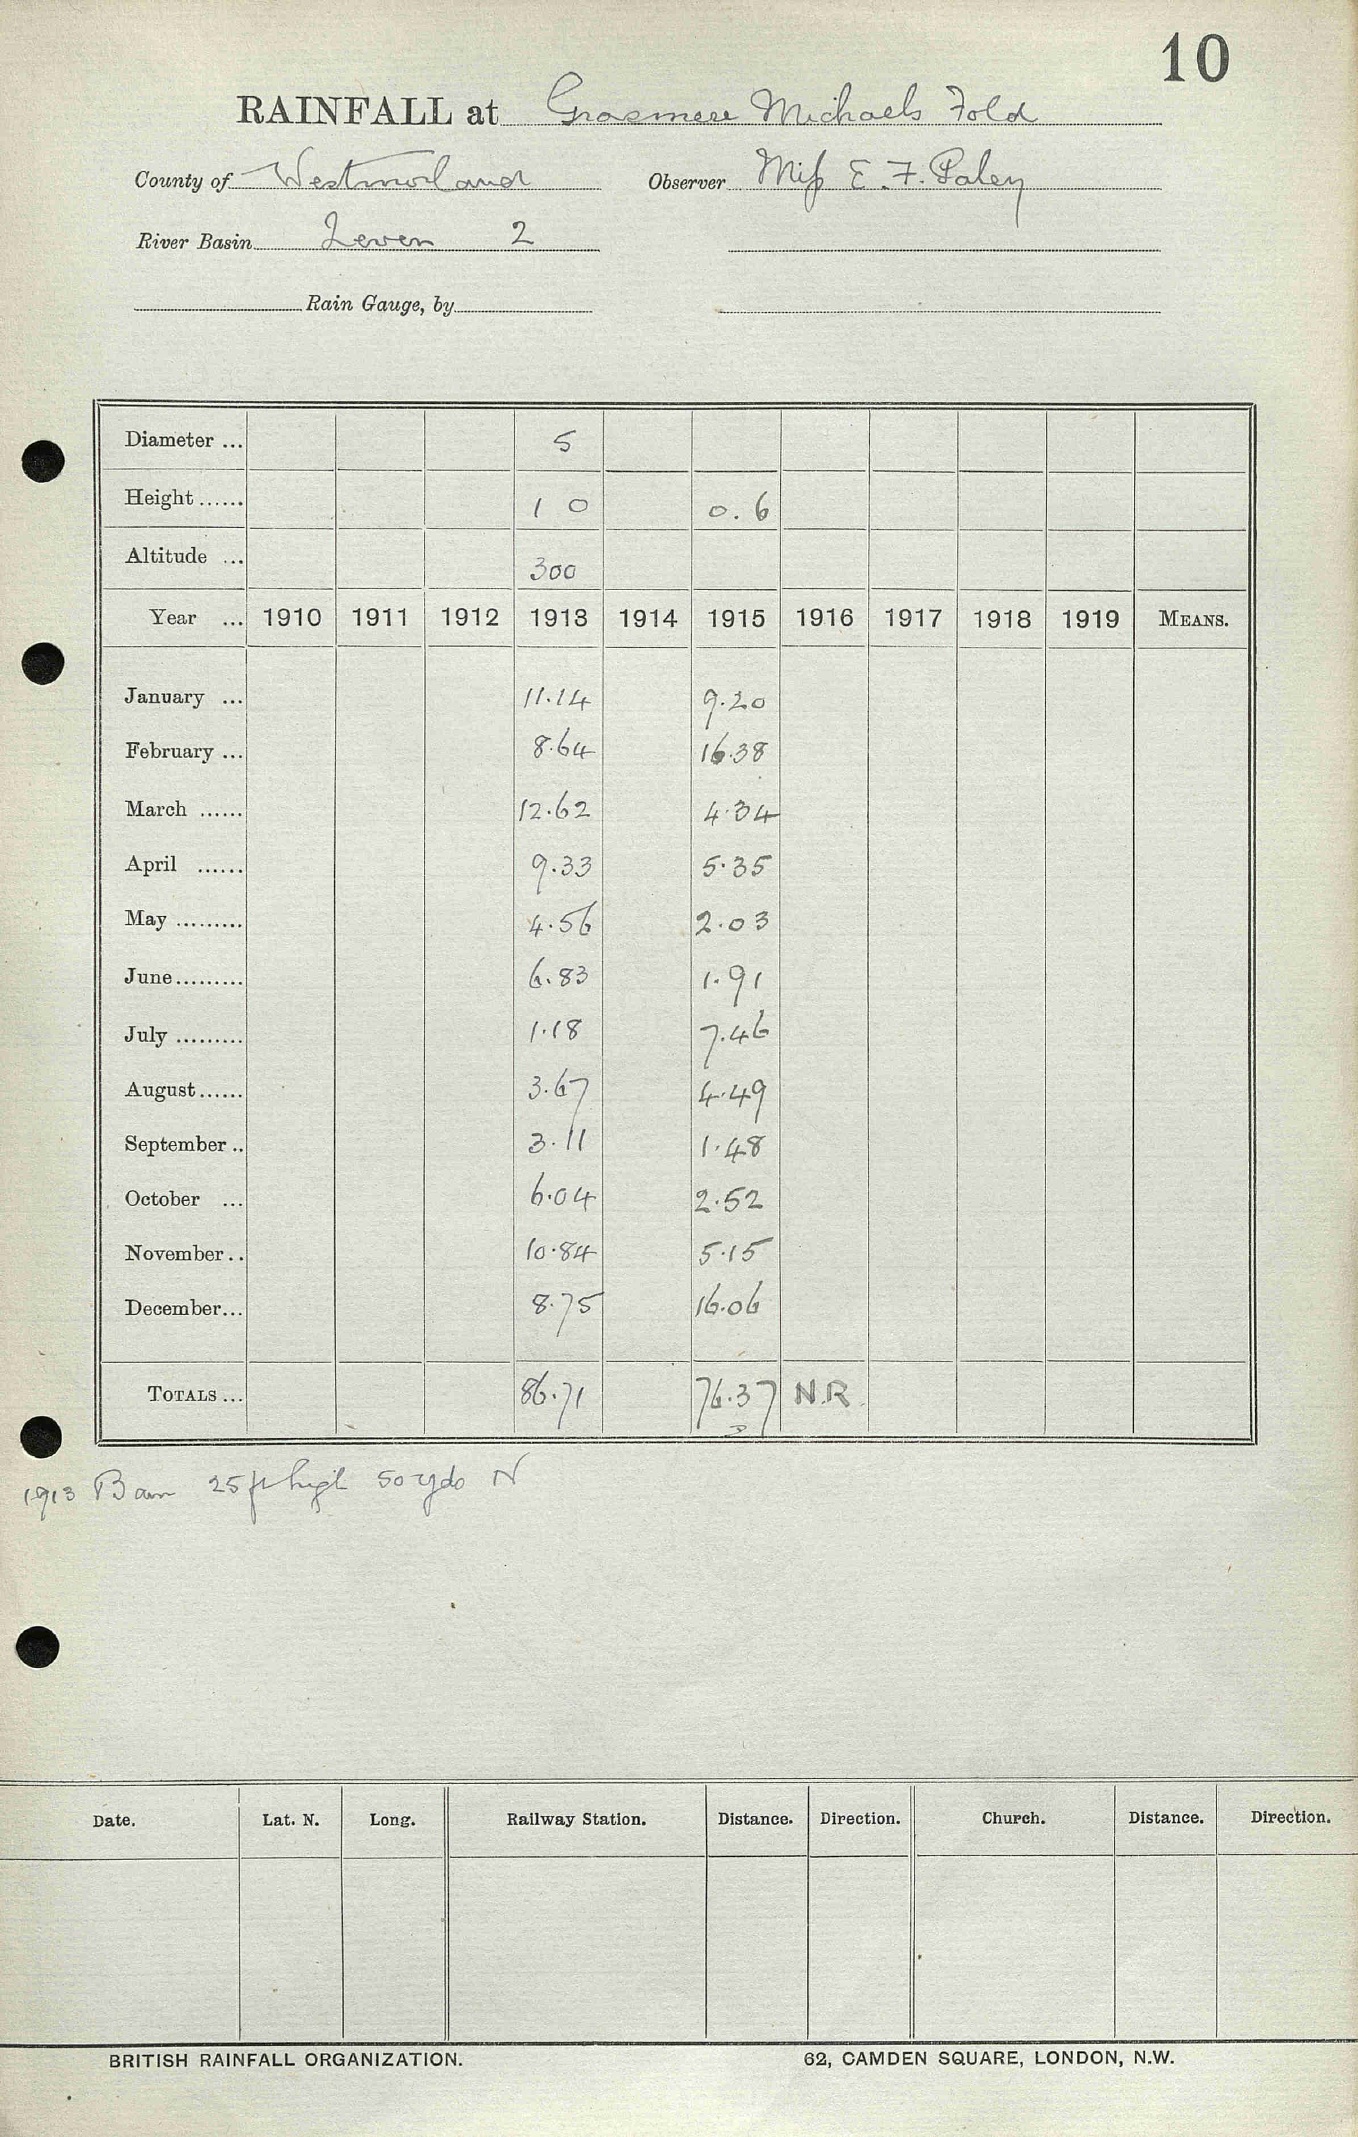 10
RAINFALL at Grasmere Michaels Fold
County of Westmorland Observer Miss E. F. Paley
River Basin Leven 2
Rain Gauge, by
Diameter ... 5
Height ...... 1 0 0.6
Altitude ... 300
Year ... 1910 1911 1912 1913 1914 1915 1916 1917 1918 1919 MEANS.
January ... 11.14 9.20
February ... 8.64 16.38
March ...... 12.62 4.34
April ...... 9.33 5.35
May ......... 4.56 2.03
June ......... 6.83 1.91
July ......... 1.18 7.46
August ...... 3.67 4.49
September .. 3.11 1.48
October ... 6.04 2.52
November .. 10.84 5.15
December ... 8.75 16.06
TOTALS ... 86.71 76.37 N.R.
1913 Barn 25 ft high 50 yds N
Date. Lat. N. Long. Railway Station. Distance. Direction. Church. Distance. Direction.
BRITISH RAINFALL ORGANIZATION. 62, CAMDEN SQUARE, LONDON, N.W.